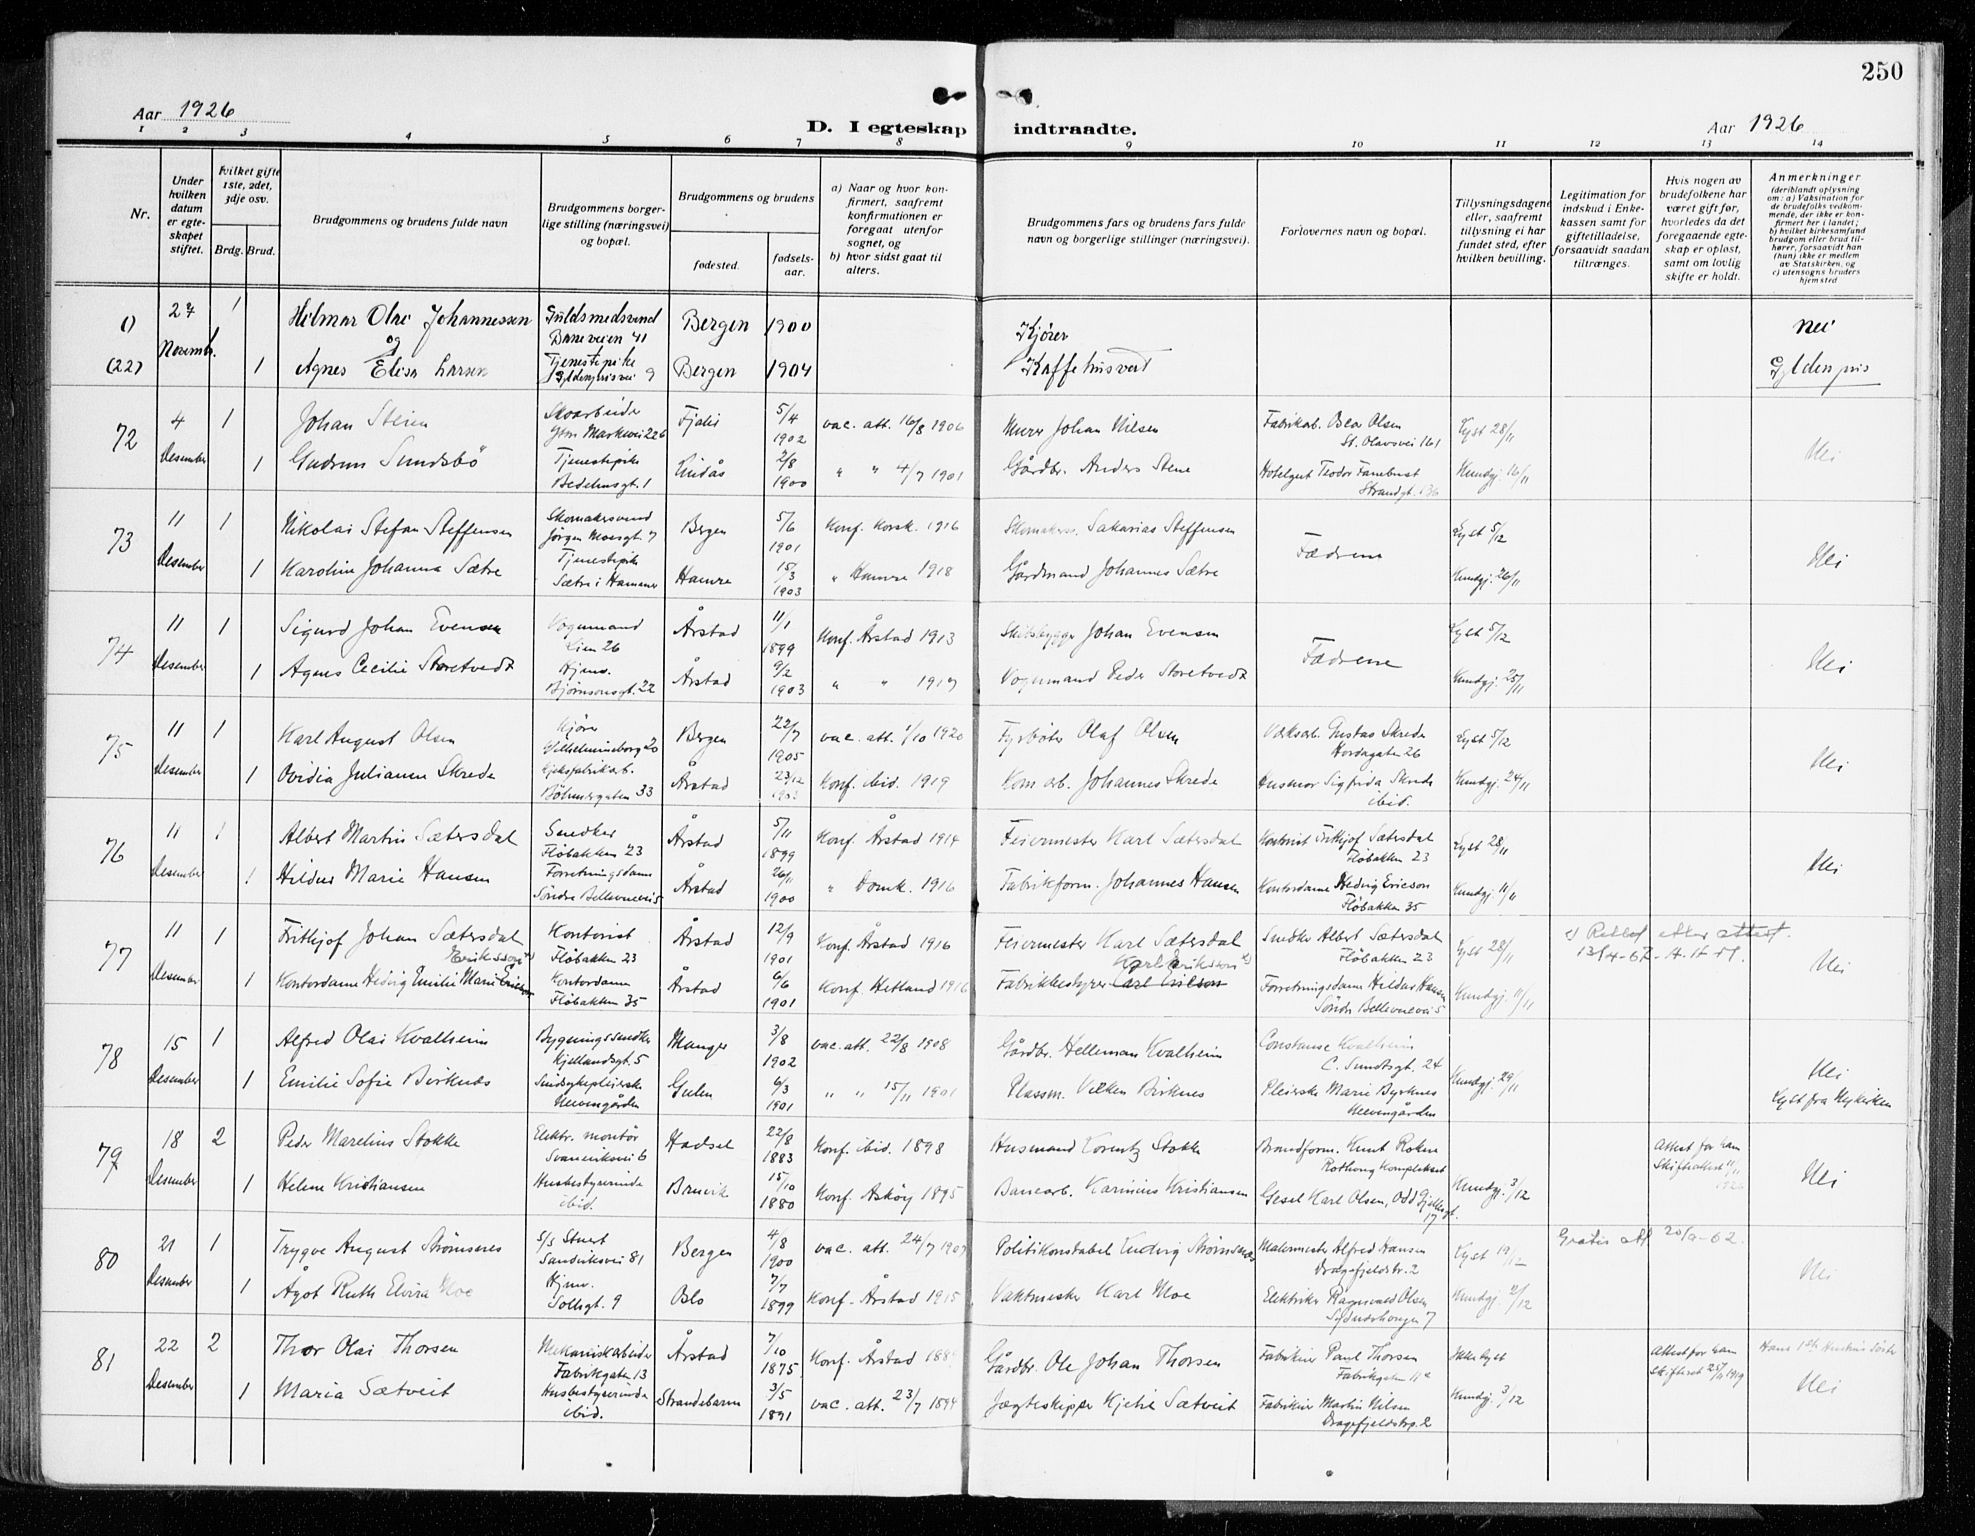 250
Aar 1926
D. I egteskap indtraadte.
Aar 1926
1 2 3 4 5 6 7 8 9 10 11 12 13 14
Nr.
Under hvilken datum er egteskapet stiftet.
Hvilket gifte 1ste, 2det, 3dje osv.
Brdg. Brud.
Brudgommens og brudens fulde navn
Brudgommens borgerlige stilling (næringsvei) og bopæl.
Brudgommens og brudens
fødested. fødselsaar.
a) Naar og hvor konfirmert, saafremt konfirmationen er foregaat utenfor sognet, og
b) hvor sidst gaat til alters.
Brudgommens fars og brudens fars fulde navn og borgerlige stillinger (næringsvei).
Forlovernes navn og bopæl.
Tillysningsdagene eller, saafremt tillysning ei har fundet sted, efter hvilken bevilling.
Legitimation for indskud i Enkekassen samt for giftetilladelse, forsaavidt saadan tiltrænges.
Hvis nogen av brudefolkene har været gift før, hvorledes da det foregaaende egteskap er opløst, samt om lovlig skifte er holdt.
Anmerkninger (deriblandt oplysning om: a) Vaksination for de brudefolks vedkommende, der ikke er konfirmert her i landet; b) hvilket kirkesamfund brudgom eller brud tilhører, forsaavidt han (hun) ikke er medlem av Statskirken, og c) utensogns bruders hjemsted
() 27 1 Hilmar Olai Johannessen Guldsmedsvend Baneveien 41 Bergen 1900 Kjører nei
og
(22) Novembr. 1 Agnes Elisa Larsen Tjenestepike Gyldenprisvei 9 Bergen 1904 Kaffehusvert Gyldenpris
72 4 1 Johan Steien Skoarbeider Ytre Markevei 226 Fjaler 5/4 1902 vac. att. 16/8 1906 Murer Johan Nilsen Fabrikab. Olsen St. Olavsvei 161 Lyst 28/11
Desember 1 Gudrun Sundsbö Tjenestepike Bedehusgt. 1 Lindås 2/8 1900 " " 4/7 1901 Gårdbr. Anders Stene Hotelgut Teodor Fanebust Strandgt. 136 Kundgj. 16/11 Nei
73 11 1 Nikolai Stefan Steffensen Skomakersvend Jörgen Moesgt. 7 Bergen 5/6 1901 Konf. Korsk. 1916 Skomakerm. Sakarias Steffensen Fædrene Lyst 5/12
Desember 1 Karoline Johanna Sætre Tjenestepike Sætre i Hammer Hamre 15/3 1903 " Hamre 1918 Gårdmand Johannes Sætre Kundgj. 26/11 Nei
74 11 1 Sigurd Johan Evensen Vognmand Lien 26 Årstad 11/1 1899 Konf. Årstad 1913 Skibsbygger Johan Evensen Fædrene Lyst 5/12
Desember 1 Agnes Cecilie Storetvedt Hjemv. Bjørnsonsgt. 22 Årstad 9/2 1903 " " 1917 Vognmand Peder Storetvedt Kundgj. 25/11 Nei
75 11 1 Karl August Olsen Kjører Vilhelmineborg 20 Bergen 22/7 1905 vac. att. 1/10 1920 Fyrbøter Olaf Olsen Verksarb. Gustav Skrede Hordagaten 26 Lyst 5/12
Desember 1 Ovidia Julianne Skrede Kjeksfabrikarb. Böhmergaten 33 Årstad 23/12 1903 Konf. ibid. 1919 Kom. arb. Johannes Skrede Husmor Sigfrida Skrede ibid. Kundgj. 24/11 Nei
76 11 1 Albert Martin Sætersdal Snedker Fløbakken 23 Årstad 5/11 1899 Konf. Årstad 1914 Feiermester Karl Sætersdal Kontorist Frithjof Sætersdal Fløbakken 23 Lyst 28/11
Desember 1 Hildur Marie Hansen Forretningsdame Söndre Bellevuevei 5 Årstad 26/11 1900 " Domk. 1916 Fabrikform. Johannes Hansen Kontordame Hedvig Ericson Fløbakken 35 Kundgj. 11/11 Nei
77 11 1 Frithjof Johan Sætersdal Kontorist Fløbakken 23 Årstad 12/9 1901 Konf. Årstad 1916 Feiermester Karl Sætersdal Snedker Albert Sætersdal Fløbakken 23 Lyst 28/11 x) Rettet etter attest. 13/4-67
Eriksson x) Karl Eriksson x)
Desember 1 Kontordame Hedvig Emilie Marie Ericson Kontordame Fløbakken 35 Årstad 6/6 1901 Konf. Hetland 1916 Fabrikkbestyrer Carl Ericson Forretningsdame Hildur Hansen Söndre Bellevuevei 5 Kundgj. 11/11 Nei
78 15 1 Alfred Olai Kvalheim Bygningssnedker Kjellandsgt. 5 Manger 3/8 1902 vac. att. 22/8 1908 Gårdbr. Helleman Kvalheim Constanse Kvalheim C. Sundtsgt. 24
Desember 1 Emilie Sofie Birknes Sindsykepleierske Neevengården Gulen 6/3 1901 " " 15/11 1901 Plassm. Vilken Birknes Pleierske Marie Byrknes Neevengården Kundgj. 29/11 Nei Lyst fra Nykirken
79 18 2 Peder Marelius Stokke Elektr. montör Svaneviksvei 6 Hadsel 22/8 1883 Konf. ibid. 1898 Husmand Lorentz Stokke Brandform. Knut Roken Rothaug komplekset Attest for ham Skifteattest 11/11 1926
Desember 1 Helene Kristiansen Husbestyrerinde ibid. Bruvik 15/10 1880 Konf. Askøy 1895 Banearb. Karinius Kristiansen Gesel Karl Olsen, Odd Gjeldsgt. 17 Kundgj. 3/12 Nei
80 21 1 Trygve August Strømsnes S/S Stuert Sandviksvei 81 Bergen 4/8 1900 vac. att. 24/7 1907 Politikonstabel Ludvig Strømsnes Malermester Alfred Hansen Dragefjeldstr. 2 Lyst 19/12 Gratis att 20/9-62.
Desember 1 Ågot Ruth Elvira Moe Hjemv. Solhgt. 9 Oslo 7/7 1899 Konf. Årstad 1915 Vaktmester Karl Moe Elektriker Ragnvald Olsen 7 Kundgj. 2/12 Nei
81 22 2 Thor Olai Thorsen Mekaniskarbeider Fabrikgaten 13 Årstad 7/10 1875 Konf. Årstad 188 Gårdbr. Ole Johan Thorsen Fabrikeier Paul Thorsen Fabrikgaten 11a Ikke lyst Attest for ham Skifteret 25/11 1919 Hans 1ste Hustrus
Desember 1 Maria Sætveit Husbestyrerinde ibid. Strandebarm 3/5 1891 vac. att. 23/7 1894 Jægteskipper Kjetil Sætveit Fabrikeier Martin Nilsen Dragefjeldstrp. 2 Kundgj. 3/12 Nei